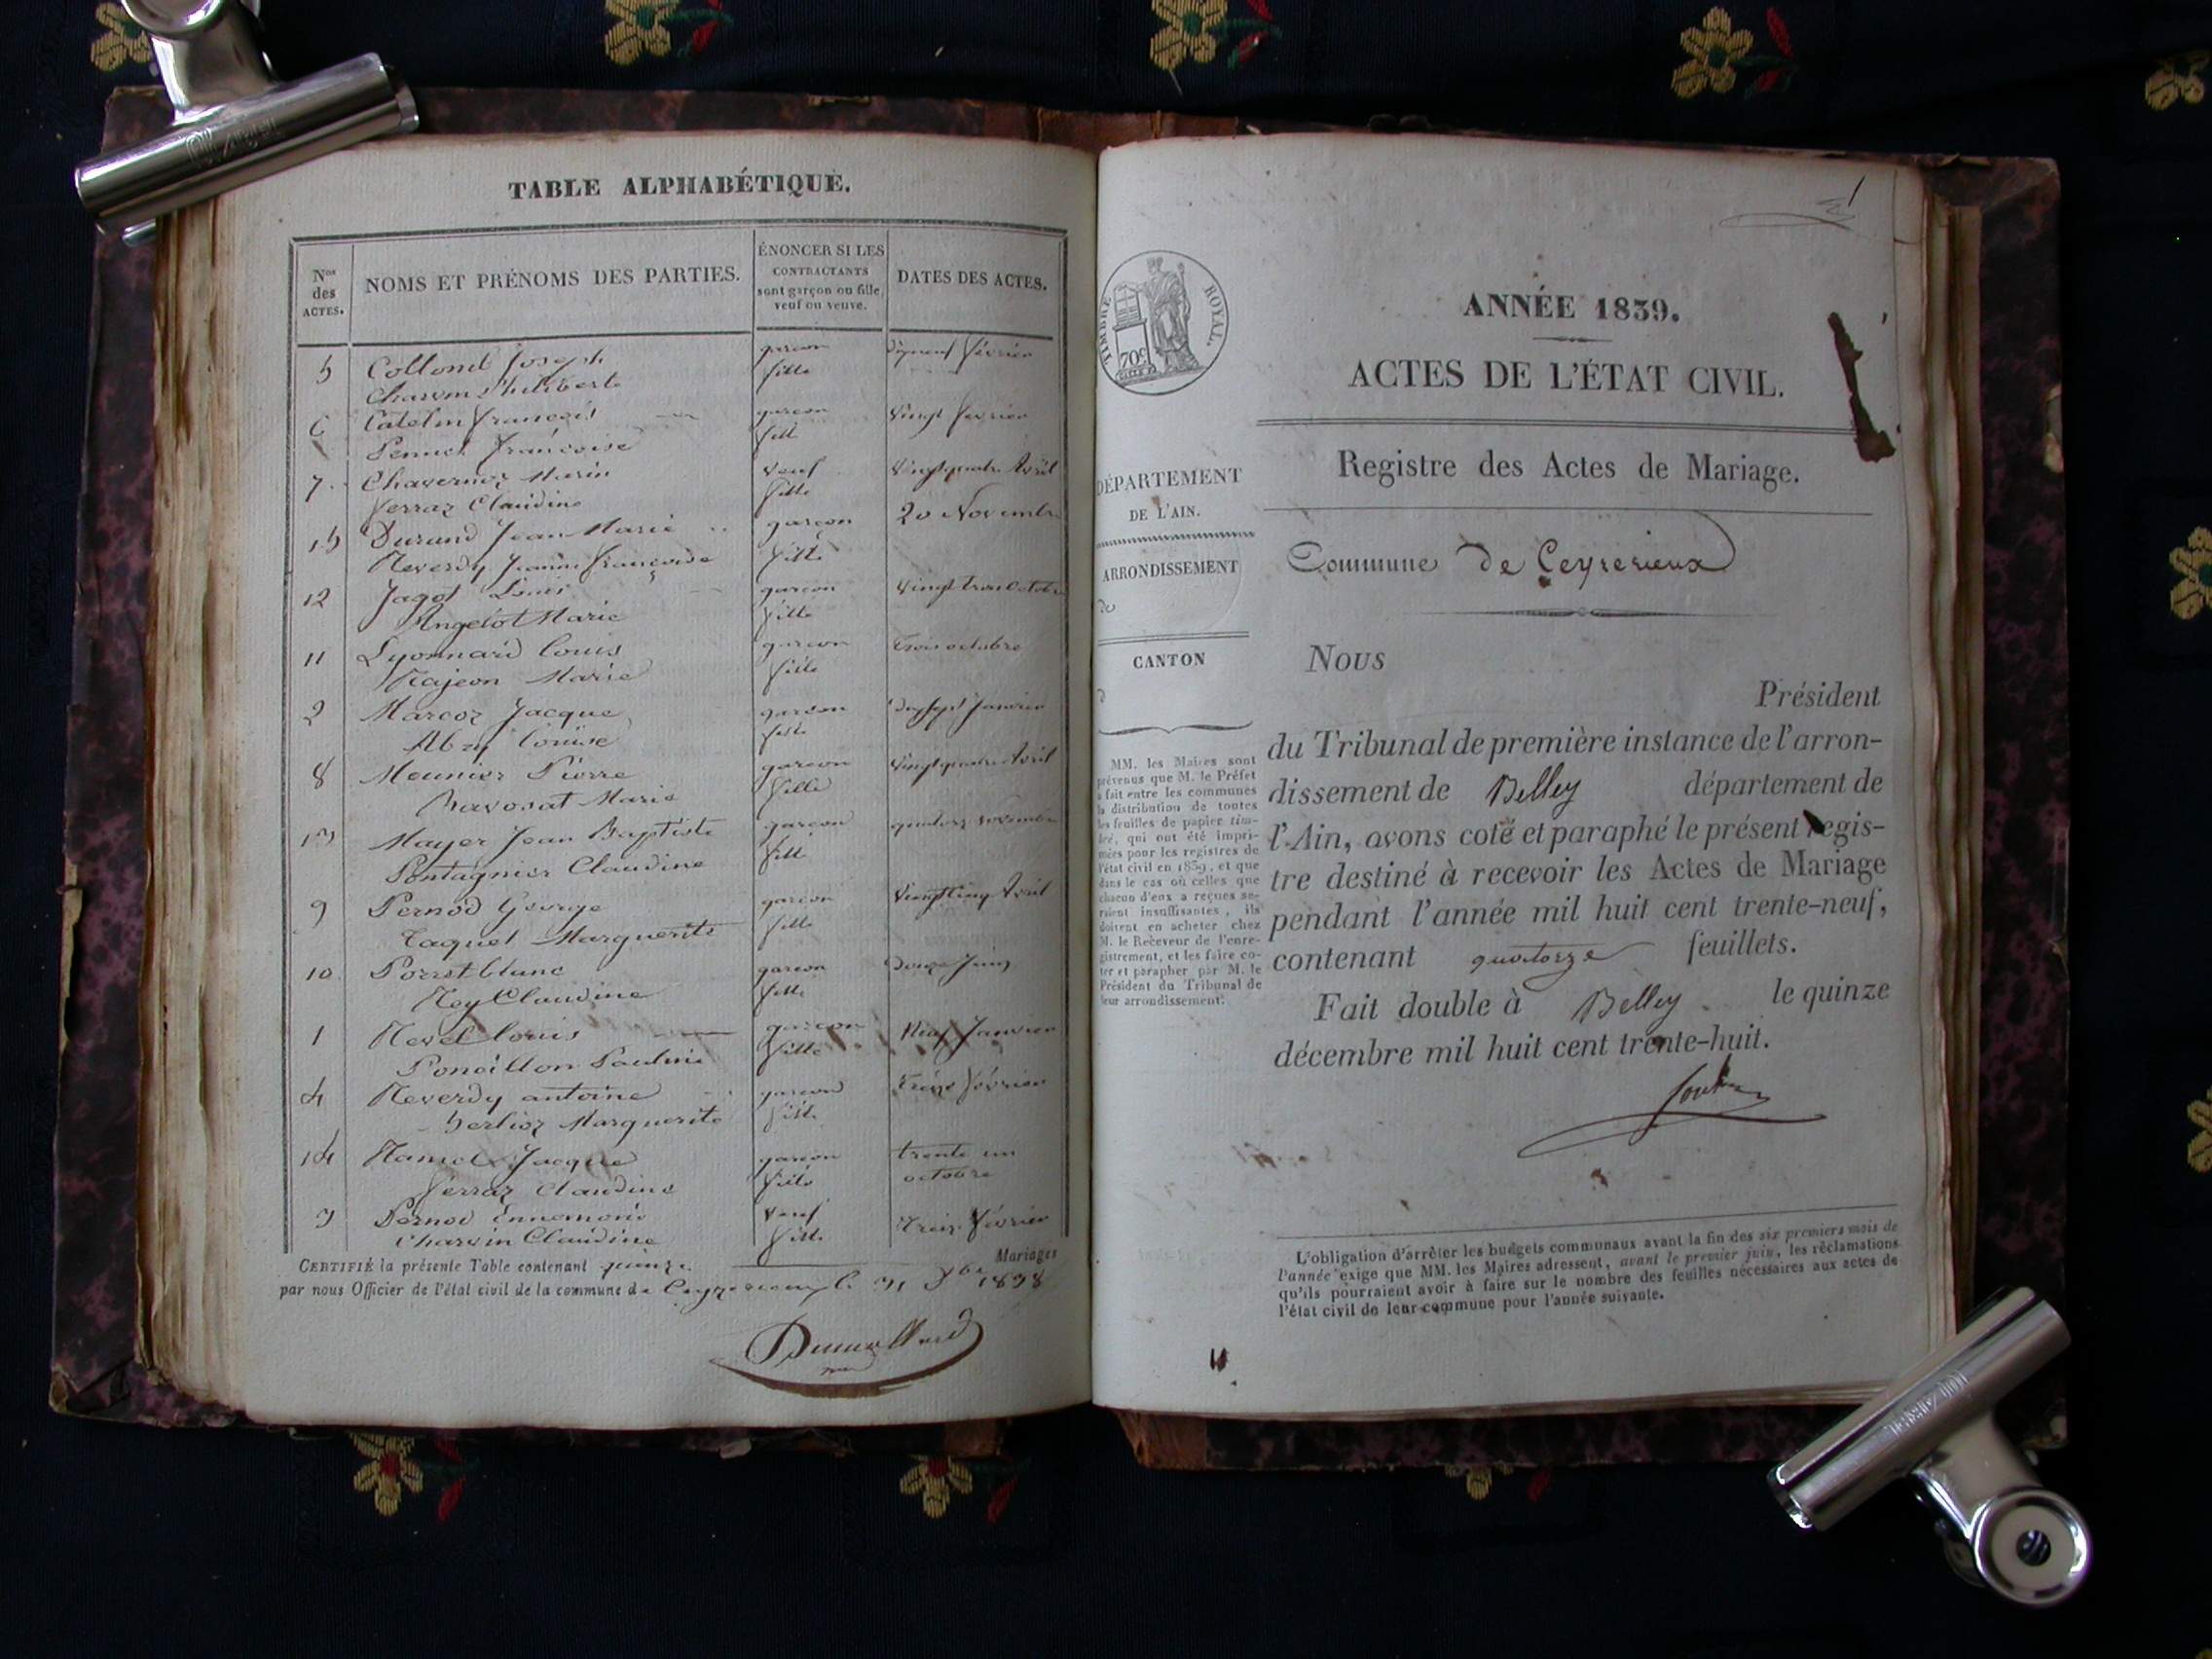 TABLE ALPHABÉTIQUE.
Nos des ACTES.
NOMS ET PRÉNOMS DES PARTIES.
ÉNONCER SI LES
CONTRACTANTS
sont garçon ou fille,
veuf ou veuve.
DATES DES ACTES.
5 Collomb Joseph garçon dixneuf février
Charvin Philiberte fille
6 Catelin françois garçon vingt fevrier
françoise fille
7 Chavernoz Marin veuf Vingtquatre Avril
ferraz Claudine fille
15 Durand Jean Marie garçon 20 Novembre
Reverdy Jeanne françoise fille
12 Jagot Louis garçon Vingt trois Octobre
Angelot Marie fille
11 Lyonnard Louis garçon Trois octobre
Marie fille
2 Marcoz Jacque garçon dixsept Janvier
Louise fille
8 Meunier Pierre garçon Vingtquatre Avril
Marie fille
13 Mayer Jean Baptiste garçon novembre
Pontagnier Claudine fille
9 Pernod George garçon Vingtcinq Avril
Taquet Marguerite fille
10 Porret blanc garçon Douze Juin
Rey Claudine fille
1 Revel Louis garçon Neuf Janvier
Poncillon Pauline fille
4 Reverdy antoine garçon Treize février
berlioz Marguerite fille
14 Ramel Jacque garçon trente un
ferraz Claudine fille octobre
3 Pernod Ennemond veuf Treize février
Charvin Claudine fille
CERTIFIÉ la présente Table contenant quinze Mariages
par nous Officier de l'état civil de la commune de Ceyzerieux le 31 Xbre 1838
Dumollard
1
TIMBRE ROYAL.
70c
ANNÉE 1839.
ACTES DE L'ÉTAT CIVIL.
Registre des Actes de Mariage.
DÉPARTEMENT
DE L'AIN.
ARRONDISSEMENT
de
CANTON
d
Commune de Ceyzerieux
MM. les Maires sont
prévenus que M. le Préfet
a fait entre les communes
la distribution de toutes
les feuilles de papier tim-
bré, qui ont été impri-
mées pour les registres de
l'état civil en 1839, et que
dans le cas où celles que
chacun d'eux a reçues se-
raient insuffisantes, ils
doivent en acheter chez
M. le Receveur de l'enre-
gistrement, et les faire co-
ter et parapher par M. le
Président du Tribunal de
leur arrondissement.
Nous
Président
du Tribunal de première instance de l'arron-
dissement de Belley département de
l'Ain, avons coté et paraphé le présent regis-
tre destiné à recevoir les Actes de Mariage
pendant l'année mil huit cent trente-neuf,
contenant quatorze feuillets.
Fait double à Belley le quinze
décembre mil huit cent trente-huit.
L'obligation d'arrêter les budgets communaux avant la fin des six premiers mois de
l'année exige que MM. les Maires adressent, avant le premier juin, les réclamations
qu'ils pourraient avoir à faire sur le nombre des feuilles nécessaires aux actes de
l'état civil de leur commune pour l'année suivante.